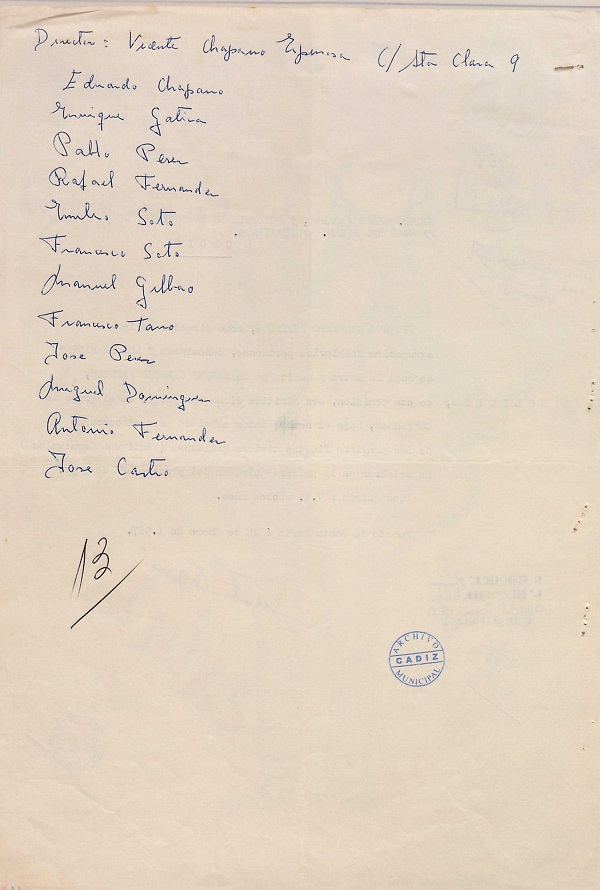 Director: Vicente Chapano Espinosa C/ Sta Clara 9
Eduardo Chapano
Enrique Gatica
Pablo Perez
Rafael Fernandez
Emilio Soto
Francisco Soto
Manuel Gilbao
Francisco Tano
Jose Perez
Miguel Dominguez
Antonio Fernandez
Jose Castro
13
ARCHIVO
CADIZ
MUNICIPAL